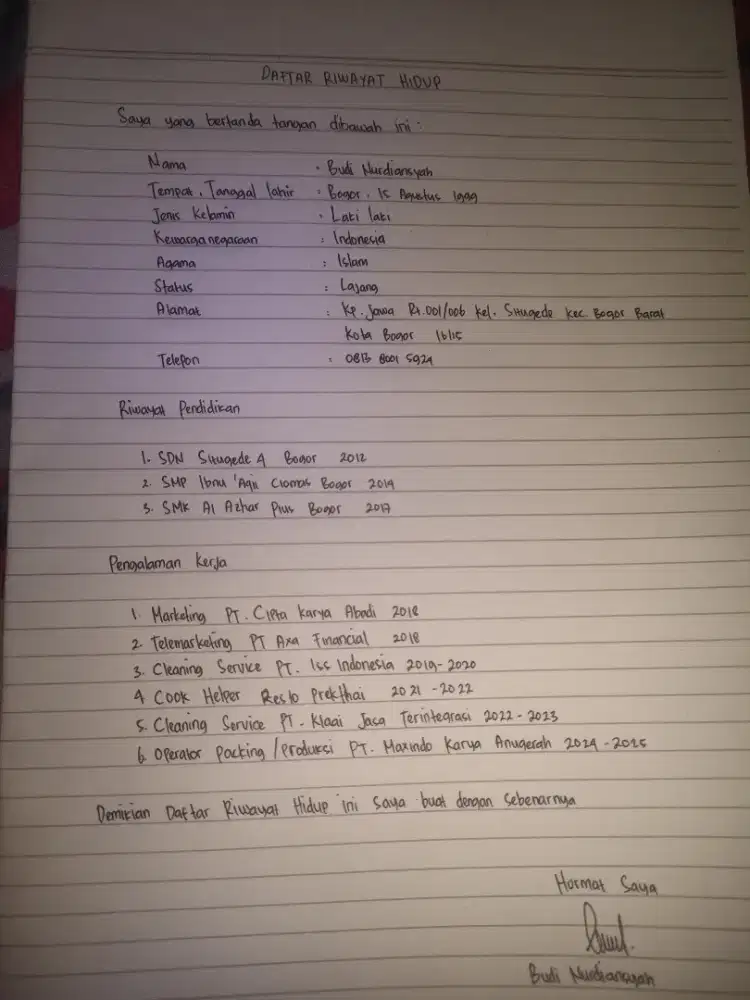 DAFTAR RIWAYAT HIDUP
Saya yang bertanda tangan dibawah ini :
Nama : Budi Nurdiansyah
Tempat, Tanggal lahir : Bogor, 15 Agustus 1999
Jenis Kelamin : Laki laki
Kewarganegaraan : Indonesia
Agama : Islam
Status : Lajang
Alamat : Kp. Jawa Rt.001/006 Kel. Situgede Kec. Bogor Barat
Kota Bogor 16115
Telepon : 0813 8001 5924
Riwayat Pendidikan
1. SDN Situgede 4 Bogor 2012
2. SMP Ibnu 'Aqil Ciomas Bogor 2014
3. SMK Al Azhar Plus Bogor 2017
Pengalaman Kerja
1. Marketing PT. Cipta Karya Abadi 2018
2. Telemarketing PT Axa Financial 2018
3. Cleaning Service PT. Iss Indonesia 2019-2020
4 Cook Helper Resto Prekthai 2021 -2022
5. Cleaning Service PT. Klaai Jasa Terintegrasi 2022-2023
6. Operator Packing /Produksi PT. Maxindo Karya Anugerah 2024 -2025
Demikian Daftar Riwayat Hidup ini saya buat dengan sebenarnya
Hormat Saya
Budi Nurdiansyah